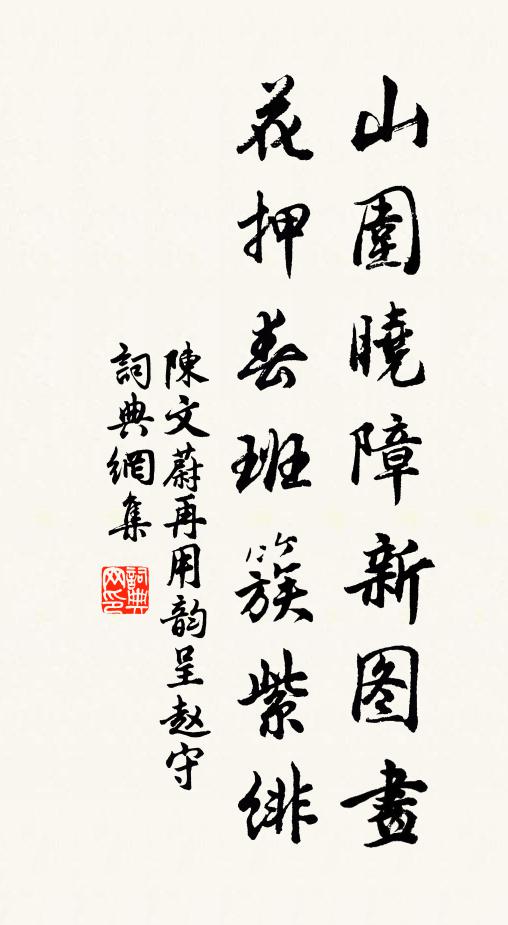 山圍曉障新图畫
花押春班簇紫緋
陳文蔚再用韵呈赵守
詞典網集
詞典网印